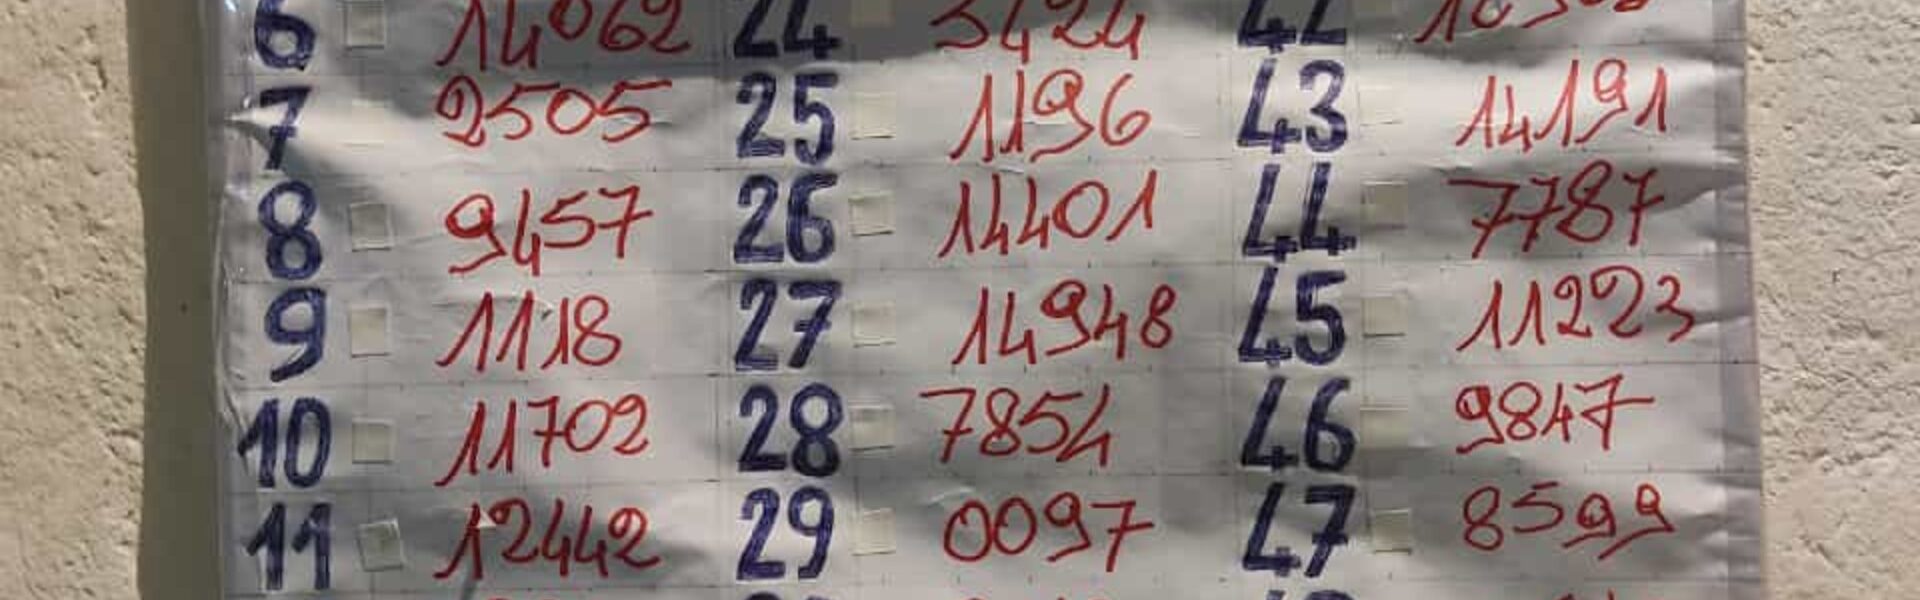 6 14062 24 3424 42
7 2505 25 1196 43 14191
8 9457 26 14401 44 7787
9 1118 27 14948 45 11223
10 11702 28 7854 46 9847
11 12442 29 0097 47 8599